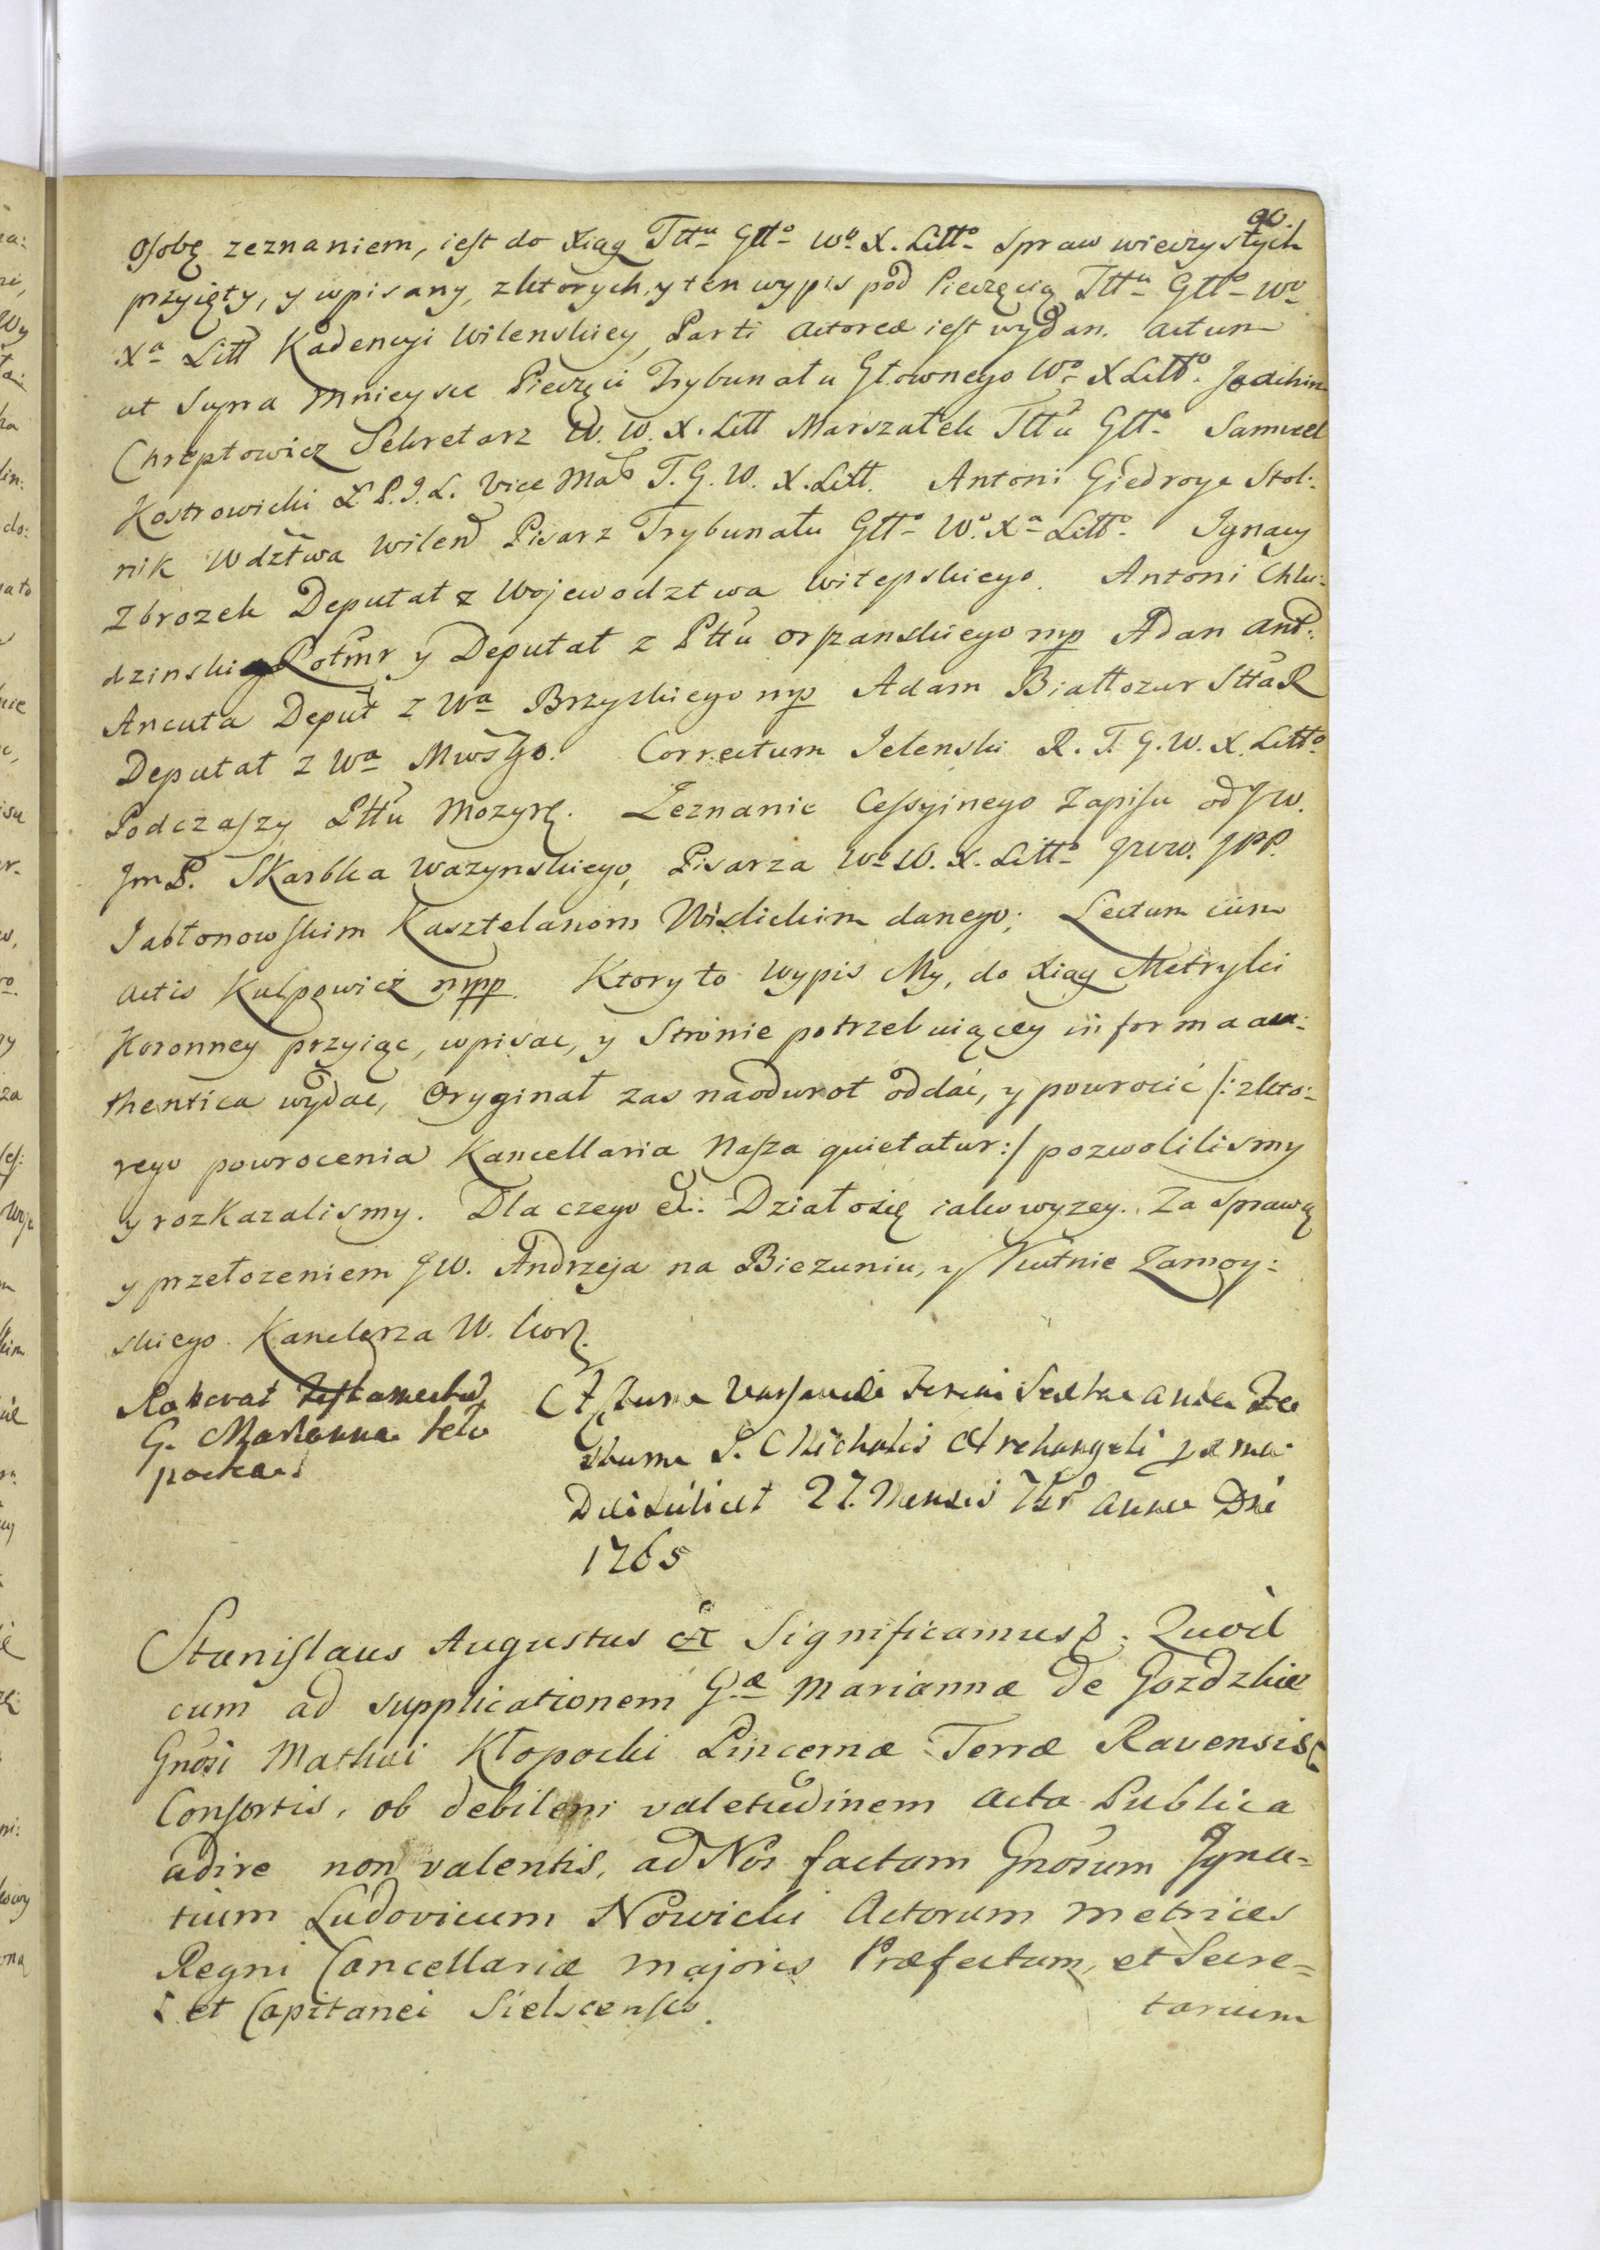 90.
osobę zeznaniem, iest do Xiąg Tttu Gtto Wo X. Litto spraw wieczystych
przyięty, y wpisany, z ktorych y ten wypis pod Pieczęcią Tttu Gtto Wo
Xa Litt Kadencyi Wilenskiey, Parti Actoreæ iest wydan. Actum
ut supra Mnieysce Pieczęci Trybunatu Głownego Wo X Litto. Joachim
Chreptowicz Sekretarz W. W. X. Litt Marszałek Tttu Gtto Samuel
Kostrowicki P. J. L. Vice Mar T. G. W. X. Litt. Antoni Giedroyc Stol:
nik Wdztwa Wilen Pisarz Trybunału Gtto Wo Xa Litto. Ignacy
Zbrozek Deputat z Wojewodztwa Witepskiego. Antoni Chlu:
dzinski Rotmr y Deputat z Pttu Orszanskiego mp Adam Ant:
Ancuta Deput z Wa Brzyskiego mp Adam Białłozur Stta R
Deputat z Wa Mwsgo. Correctum Jelenski R. T. G. W. X. Litto
Podczaszy Pttu Mozyr. Zeznanie Cessyinego Zapisu od JW.
Jm P. Skarbka Wazynskiego, Pisarza Wo W. X. Litto JWW. JPP.
Jabłonowskim Kasztelanom Wislickim danego; Lectum cum
Actis Kulpowicz mpp. Ktory to Wypis My, do Xiąg Metryki
Koronney przyiąc, wpisac, y Stronie potrzebuiącey in forma au:
thentica wydac, Oryginał zas naodwrot oddać, y powrocić /: z kto:
rego powrocenia Kancellaria Nasza quietatur :/ pozwolilismy
y rozkazalismy. Dla czego et: Działo się iako wyzey. Za sprawą
y przełozeniem JW. Andrzeja na Biezuniu, y Kutnie Zamoy:
skiego Kanclerza W. Kor.
Roborat Testamentu
G. Marianna Kło
pocka
Actum Varsaviæ Feria Sexta ante Fe
stum S. Michaelis Archangeli
Die scilicet 27. Mensis 7br Anno Dni
1765
Stanislaus Augustus etc Significamus. Quod
cum ad supplicationem Gæ Mariannæ de Gozdzkie
Gnosi Mathæi Kłopocki Pincernæ Terræ Ravensis
Consortis, ob debilem valetudinem Acta Publica
adire non valentis, ad Nos factam Gnosum Igna=
tium Ludovicum Nowicki Actorum Metrices
Regni Cancellariæ Majoris Præfectum, et Secre=
et Capitanei Sielscensis.
tarium